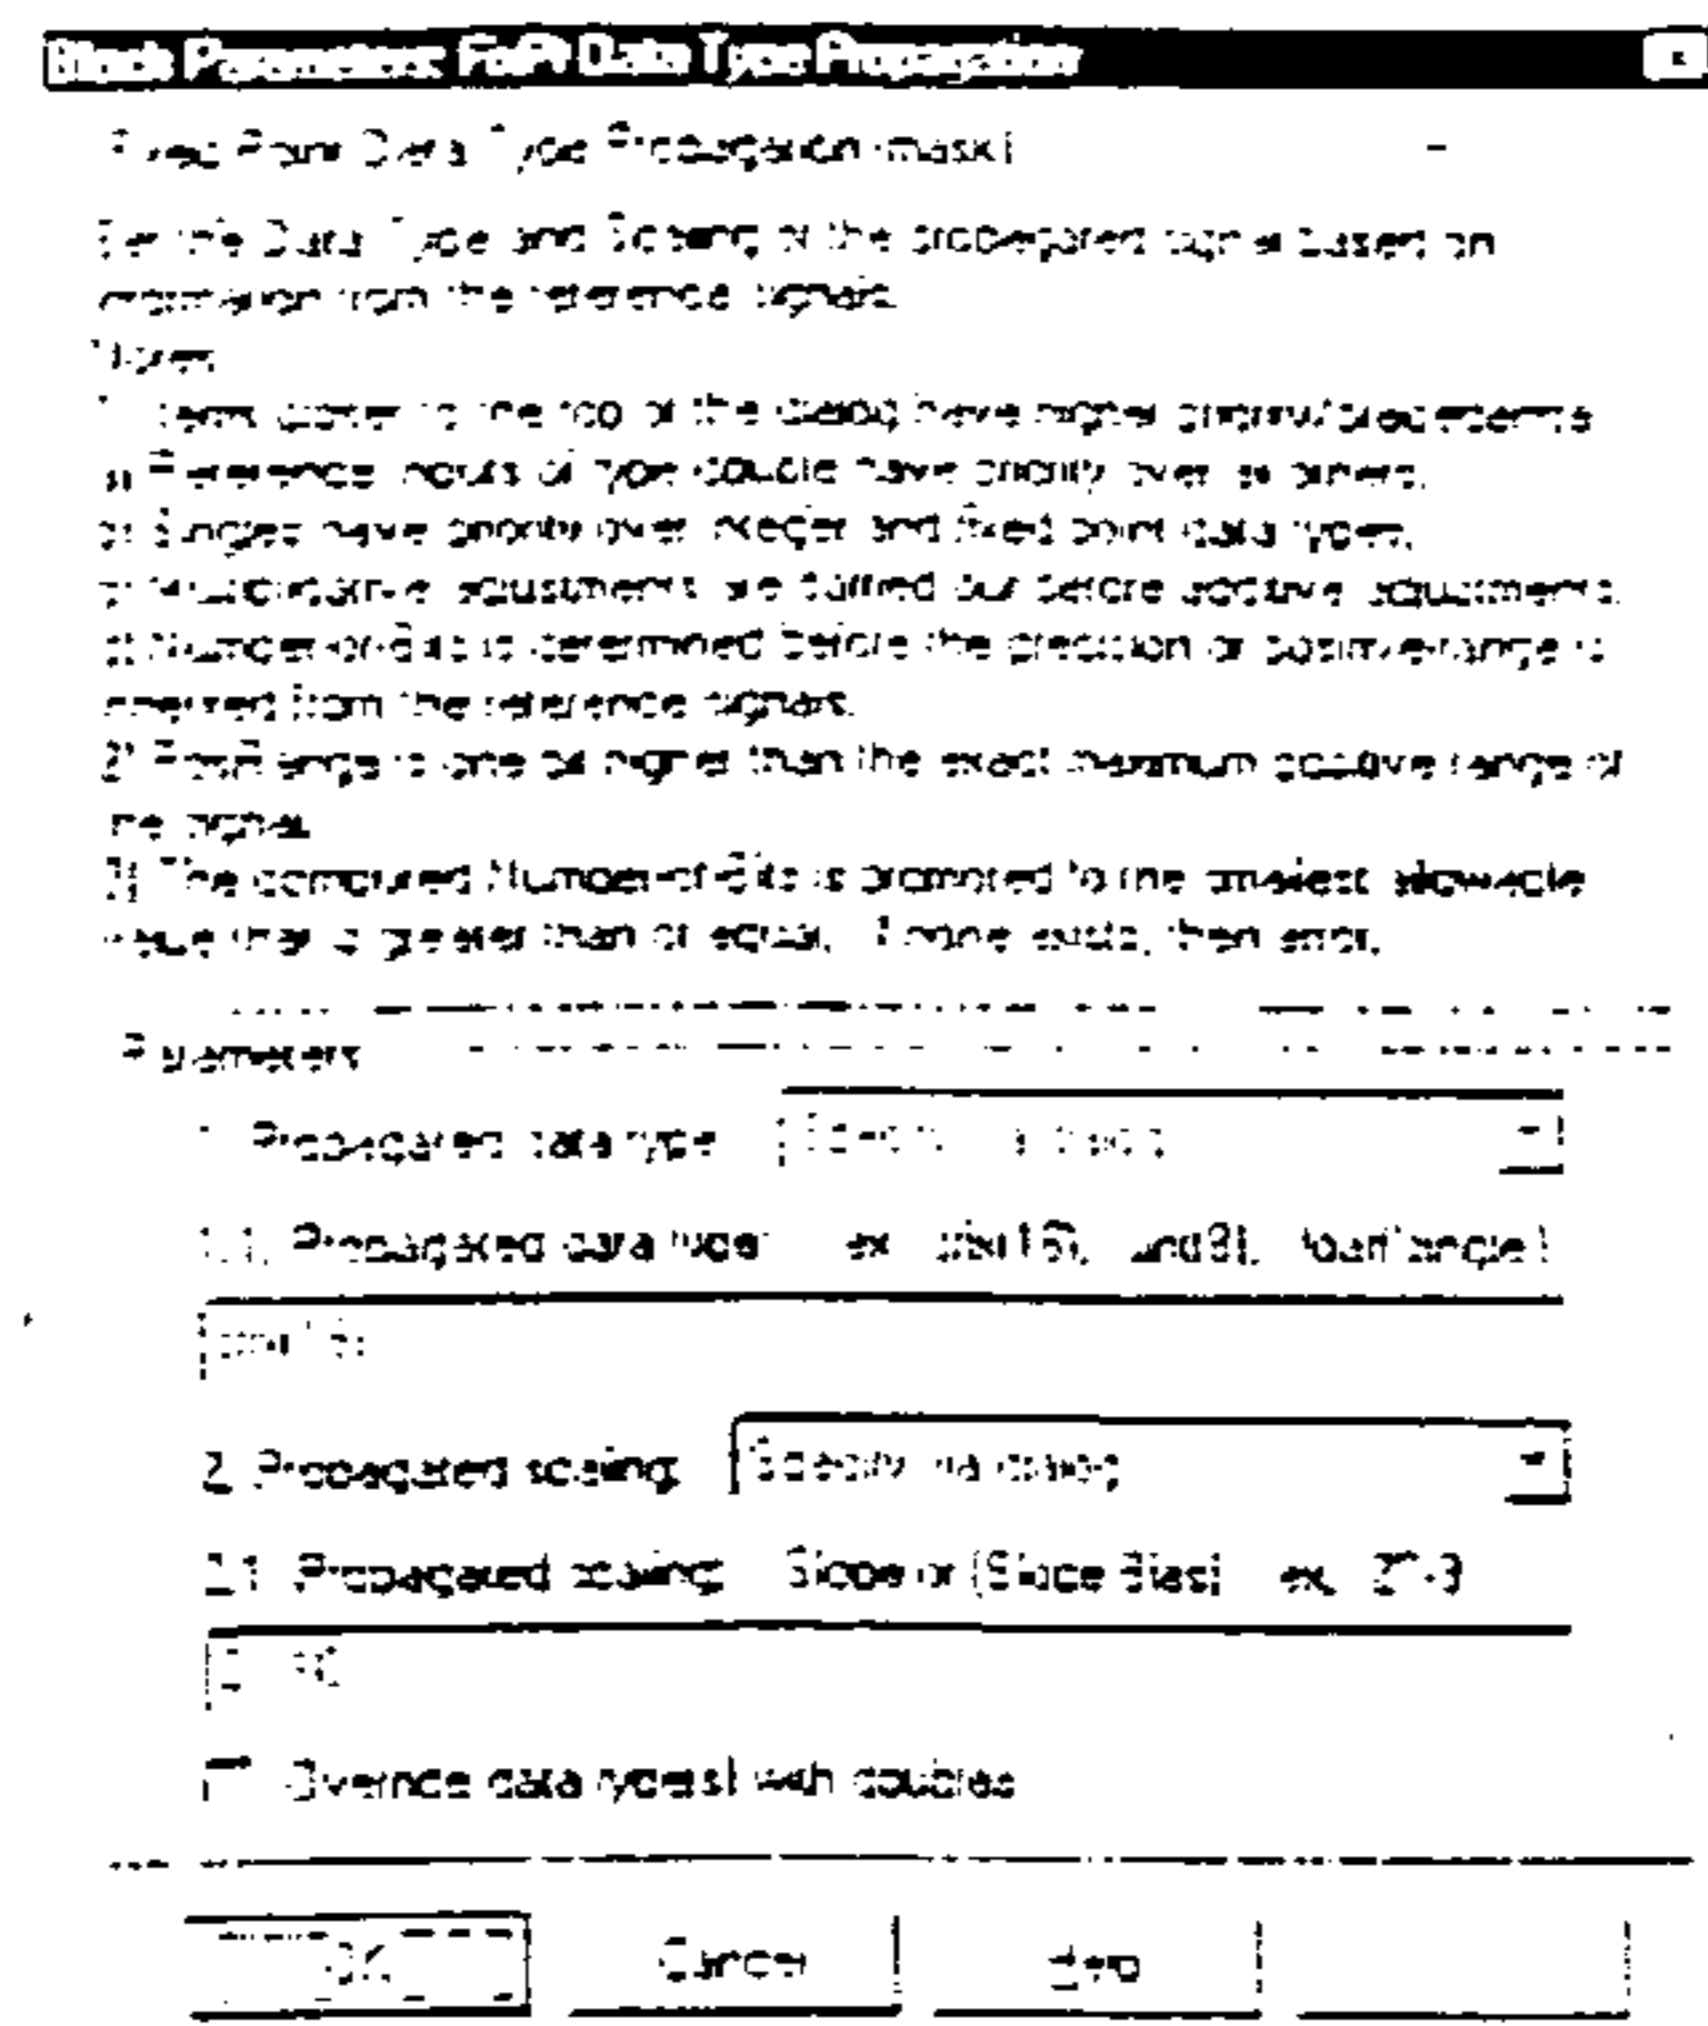 Block Parameters: FixPt Data Type Propagation
Fixed-Point Data Type Propagation (mask)
Set the Data Type and Scaling of the propagated signal based on
information from the reference signals.
Notes:
1) Items closer to the top of the dialog have higher priority/precedence
a) Reference inputs of type double have priority over all others.
b) Singles have priority over integer and fixed point data types.
c) Multiplicative adjustments are carried out before additive adjustments.
d) Number-of-Bits is determined before the precision or positive-range is
inherited from the reference signals.
2) PosRange is one bit higher than the exact maximum positive range of
the signal.
3) The computed Number-of-Bits is promoted to the smallest allowable
value that is greater than or equal. If none exists, then error.
Parameters
1. Propagated data type: Specify via dialog
1.1. Propagated data type: ex. sfix(16), uint(8), float('single')
2. Propagated scaling: Specify via dialog
2.1. Propagated scaling: Slope or [Slope Bias] ex. 2^-9
Override data type(s) with doubles
OK Cancel Help